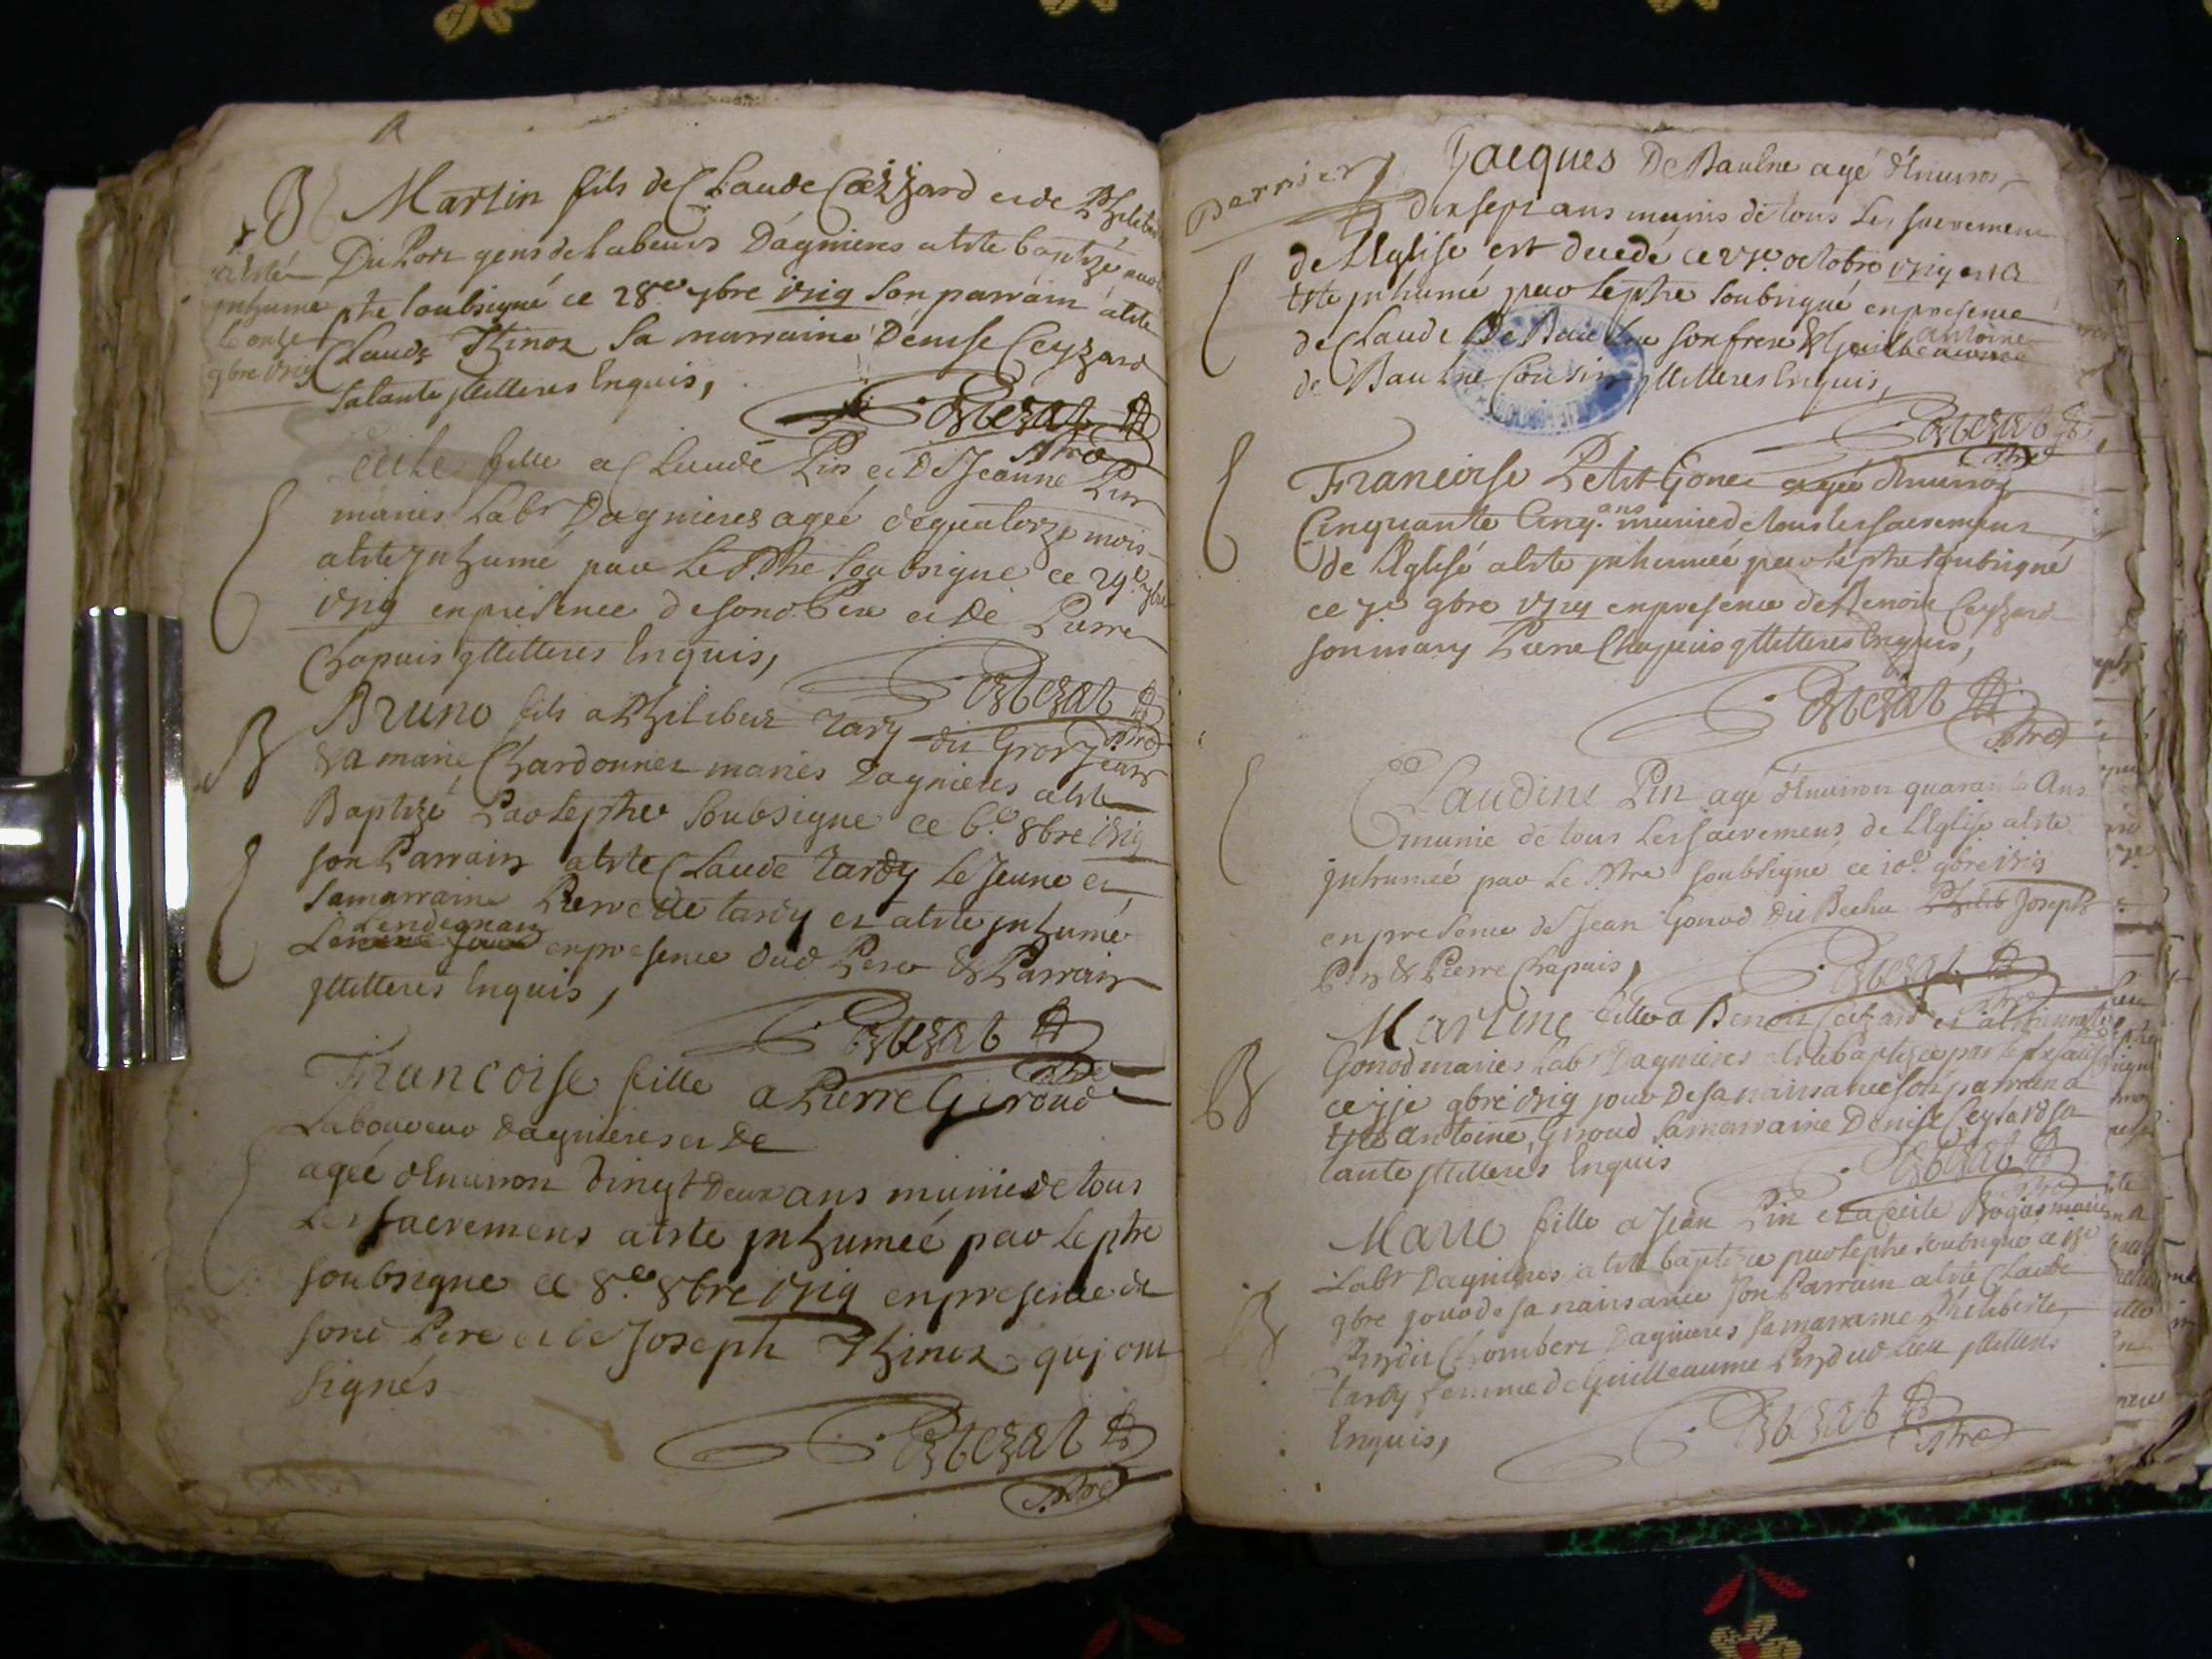 B Martin fils de Claude Ceÿzard et de Philiber
Du Port gens de labeurs Dagnieres a este baptizé par
ptre soubsigné ce 28e 7bre 1719 son parrain a este
Claude Thinon sa marraine Denise Ceyzard
sa tante illitteres enquis,
a esté
inhumé
le onze
9bre 1719
Estezat
ptre
Cecile fille a Claude Pin et De Jeanne Pin
mariés Labr Dagnieres ageé de quatorze mois
a este inhumé par Le Ptre soubsigné ce 29e 7bre
1719 en presence de sond Pere et De Pierre
Chapuis illitteres enquis,
Estezat
ptre
B Bruno fils a Philibert Tardy dit Gros Jean
& a marie Chardonnet mariés Dagnieres a este
Baptizé Par le ptre soubsigné ce 6e 8bre 1719
son Parrain a este Claude Tardy Le Jeune et
sa marraine Pierrette tardy et a este inhumé
Lendemain
en presence dud Pere & Parrain
illitteres enquis,
Estezat
ptre
Francoise fille a Pierre Giroud
Laboureur dagnieres et De
ageé d'environ vingt deux ans munie de tous
Les sacremens a este inhumeé par le ptre
soubsigné ce 8e 8bre 1719 en presence de
sond Pere et de Joseph Thinon qui ont
signés
Estezat
ptre
Dernier
Jacques De Baulne agé d'environ
dix sept ans munis de tous Les sacremens
de l'Eglise est decedé ce octobre 1719 et a
este inhumé par le ptre soubsigné en presence
de Claude De Baulne son frere & antoine
de Baulne Cousin illitteres enquis,
Estezat
ptre
Francoise Petit Gonet ageé d'environ
Cinquante Cinq ans munie de tous les sacremens
de l'Eglise a este inhumeé par le ptre soubsigné
ce 7e 9bre 1719 en presence de Benoit Ceyzard
son mary Pierre Chapuis illitteres enquis,
Estezat
ptre
Claudine Pin agé d'environ quarante Ans
munie de tous Les sacremens de L'Eglise a este
inhumeé par Le Ptre soubsigné ce 10e 9bre 1719
en presence de Jean Gonod dit Joseph
Pin & Pierre Chapuis,
Estezat
ptre
B Martine fille a Benoit Ceyzard et a Etiennette
Gonod mariés Labr Dagnieres a este baptizeé par le ptre soubsigné
ce 9bre 1719 jour de sa naissance son parrain a
este antoine Giroud sa marraine Denise Ceyzard sa
tante illitterés enquis
Estezat
ptre
B Marie fille a Jean Pin et a Cecile mariés
Labr Dagnieres a este baptizeé par le ptre soubsigné ce
9bre jour de sa naissance son Parrain a este Claude
Pin dit Chombert Dagnieres sa marraine Philiberte
tardy femme de Guilleaume Pin dud lieu illitterés
enquis,
Estezat
ptre